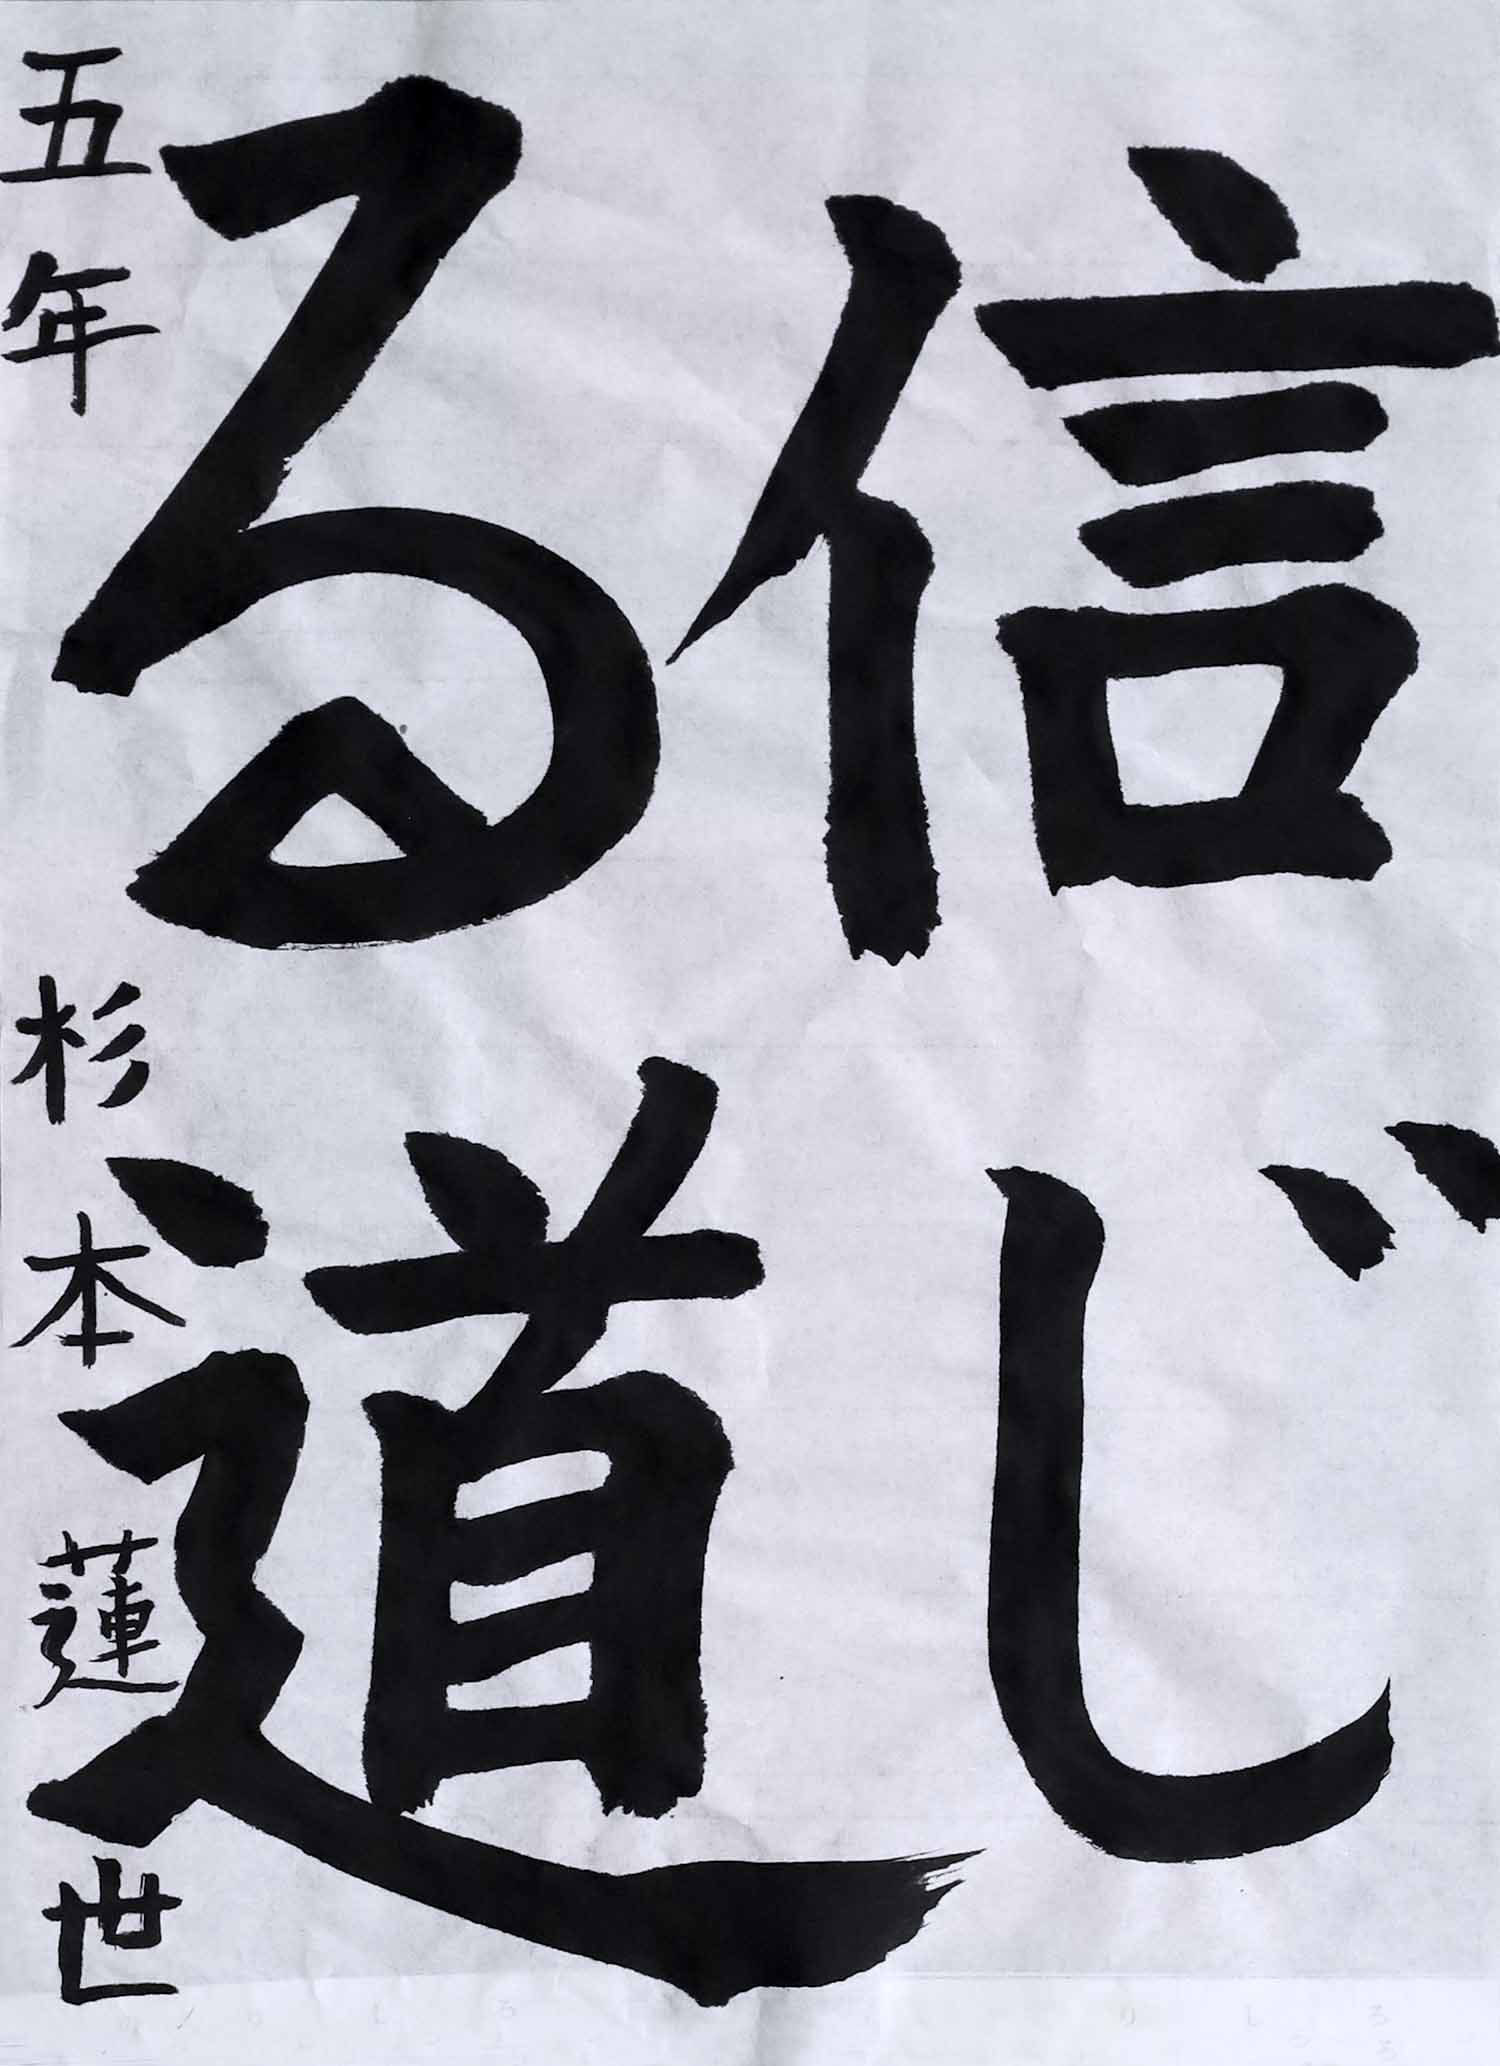 信じ
る道
五年 杉本蓮世